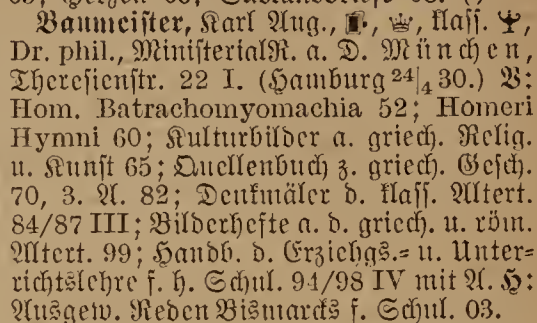 Baumeister, Karl Aug., klass.
Dr. phil., MinisterialR. a. D. München,
Theresienstr. 22 I. (Hamburg 24/4 30.) V:
Hom. Batrachomyomachia 52; Homeri
Hymni 60; Kulturbilder a. griech. Relig.
u. Kunst 65; Quellenbuch z. griech. Gesch.
70, 3. A. 82; Denkmäler d. klass. Altert.
84/87 III; Bilderhefte a. d. griech. u. röm.
Altert. 99; Handb. d. Erziehgs.- u. Unter-
richtslehre f. h. Schul. 94/98 IV mit A. H:
Ausgew. Reden Bismarcks f. Schul. 03.